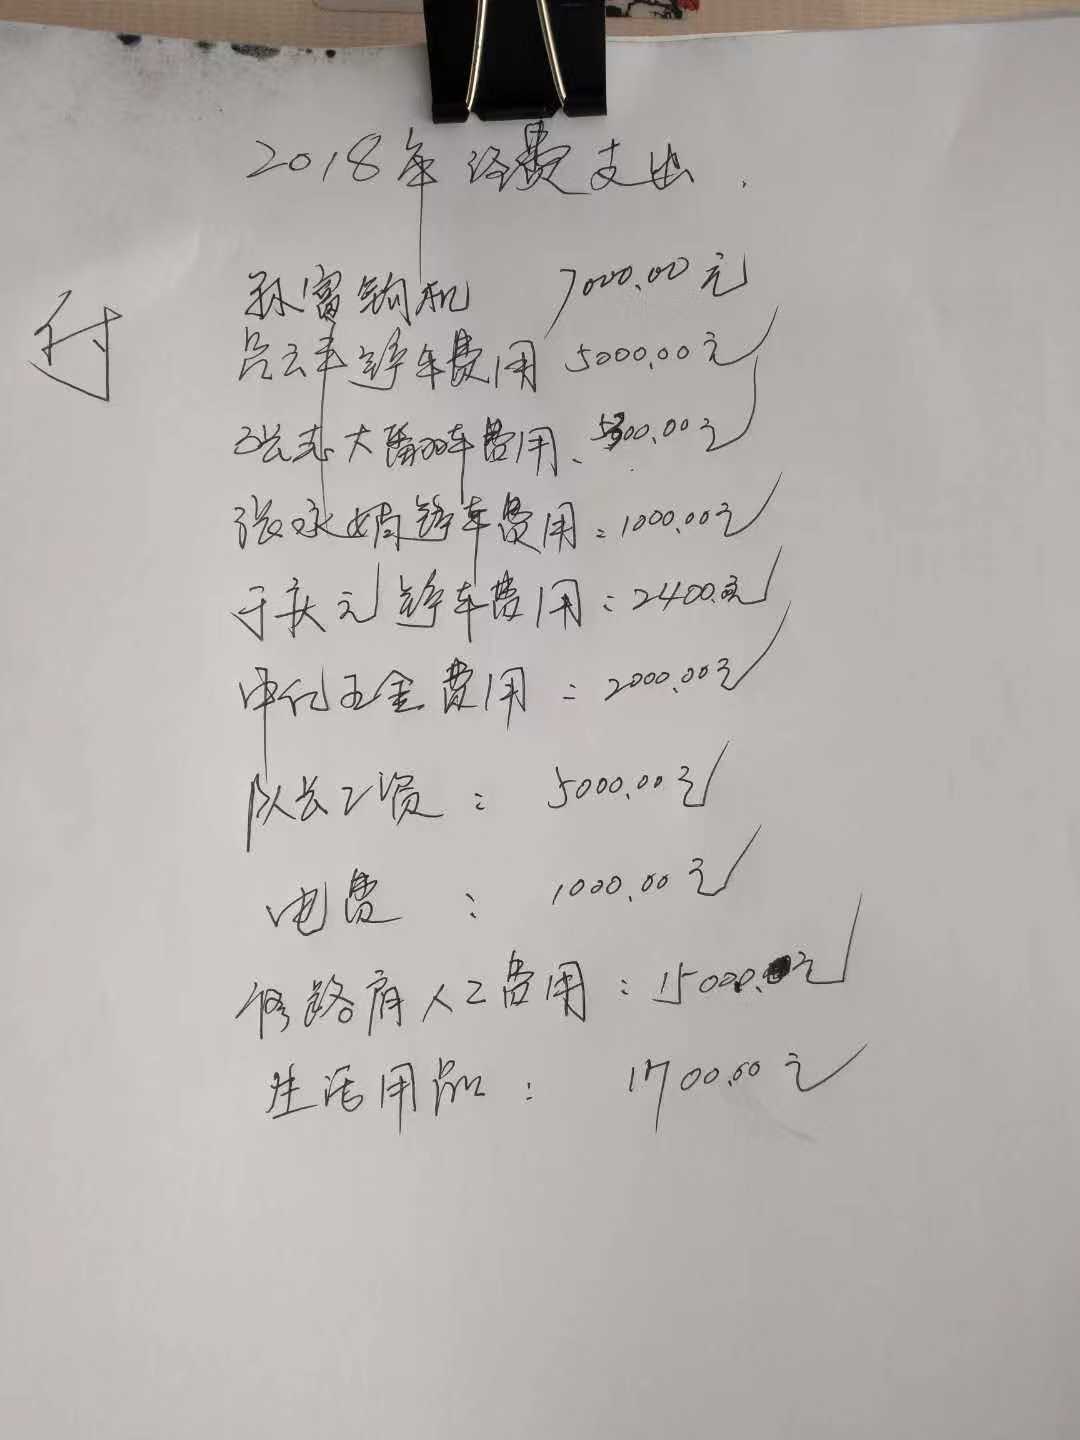 2018年经费支出.
付
孙富钩机 7000.00元
吕云丰铲车费用 5000.00元
张志大翻斗车费用: 500.00元
张永娟铲车费用: 1000.00元
于庆元铲车费用: 2400.元
中亿五金费用: 2000.00元
队长工资: 5000.00元
电费: 1000.00元
修路肩人工费用: 1500元
生活用品: 1700.00元